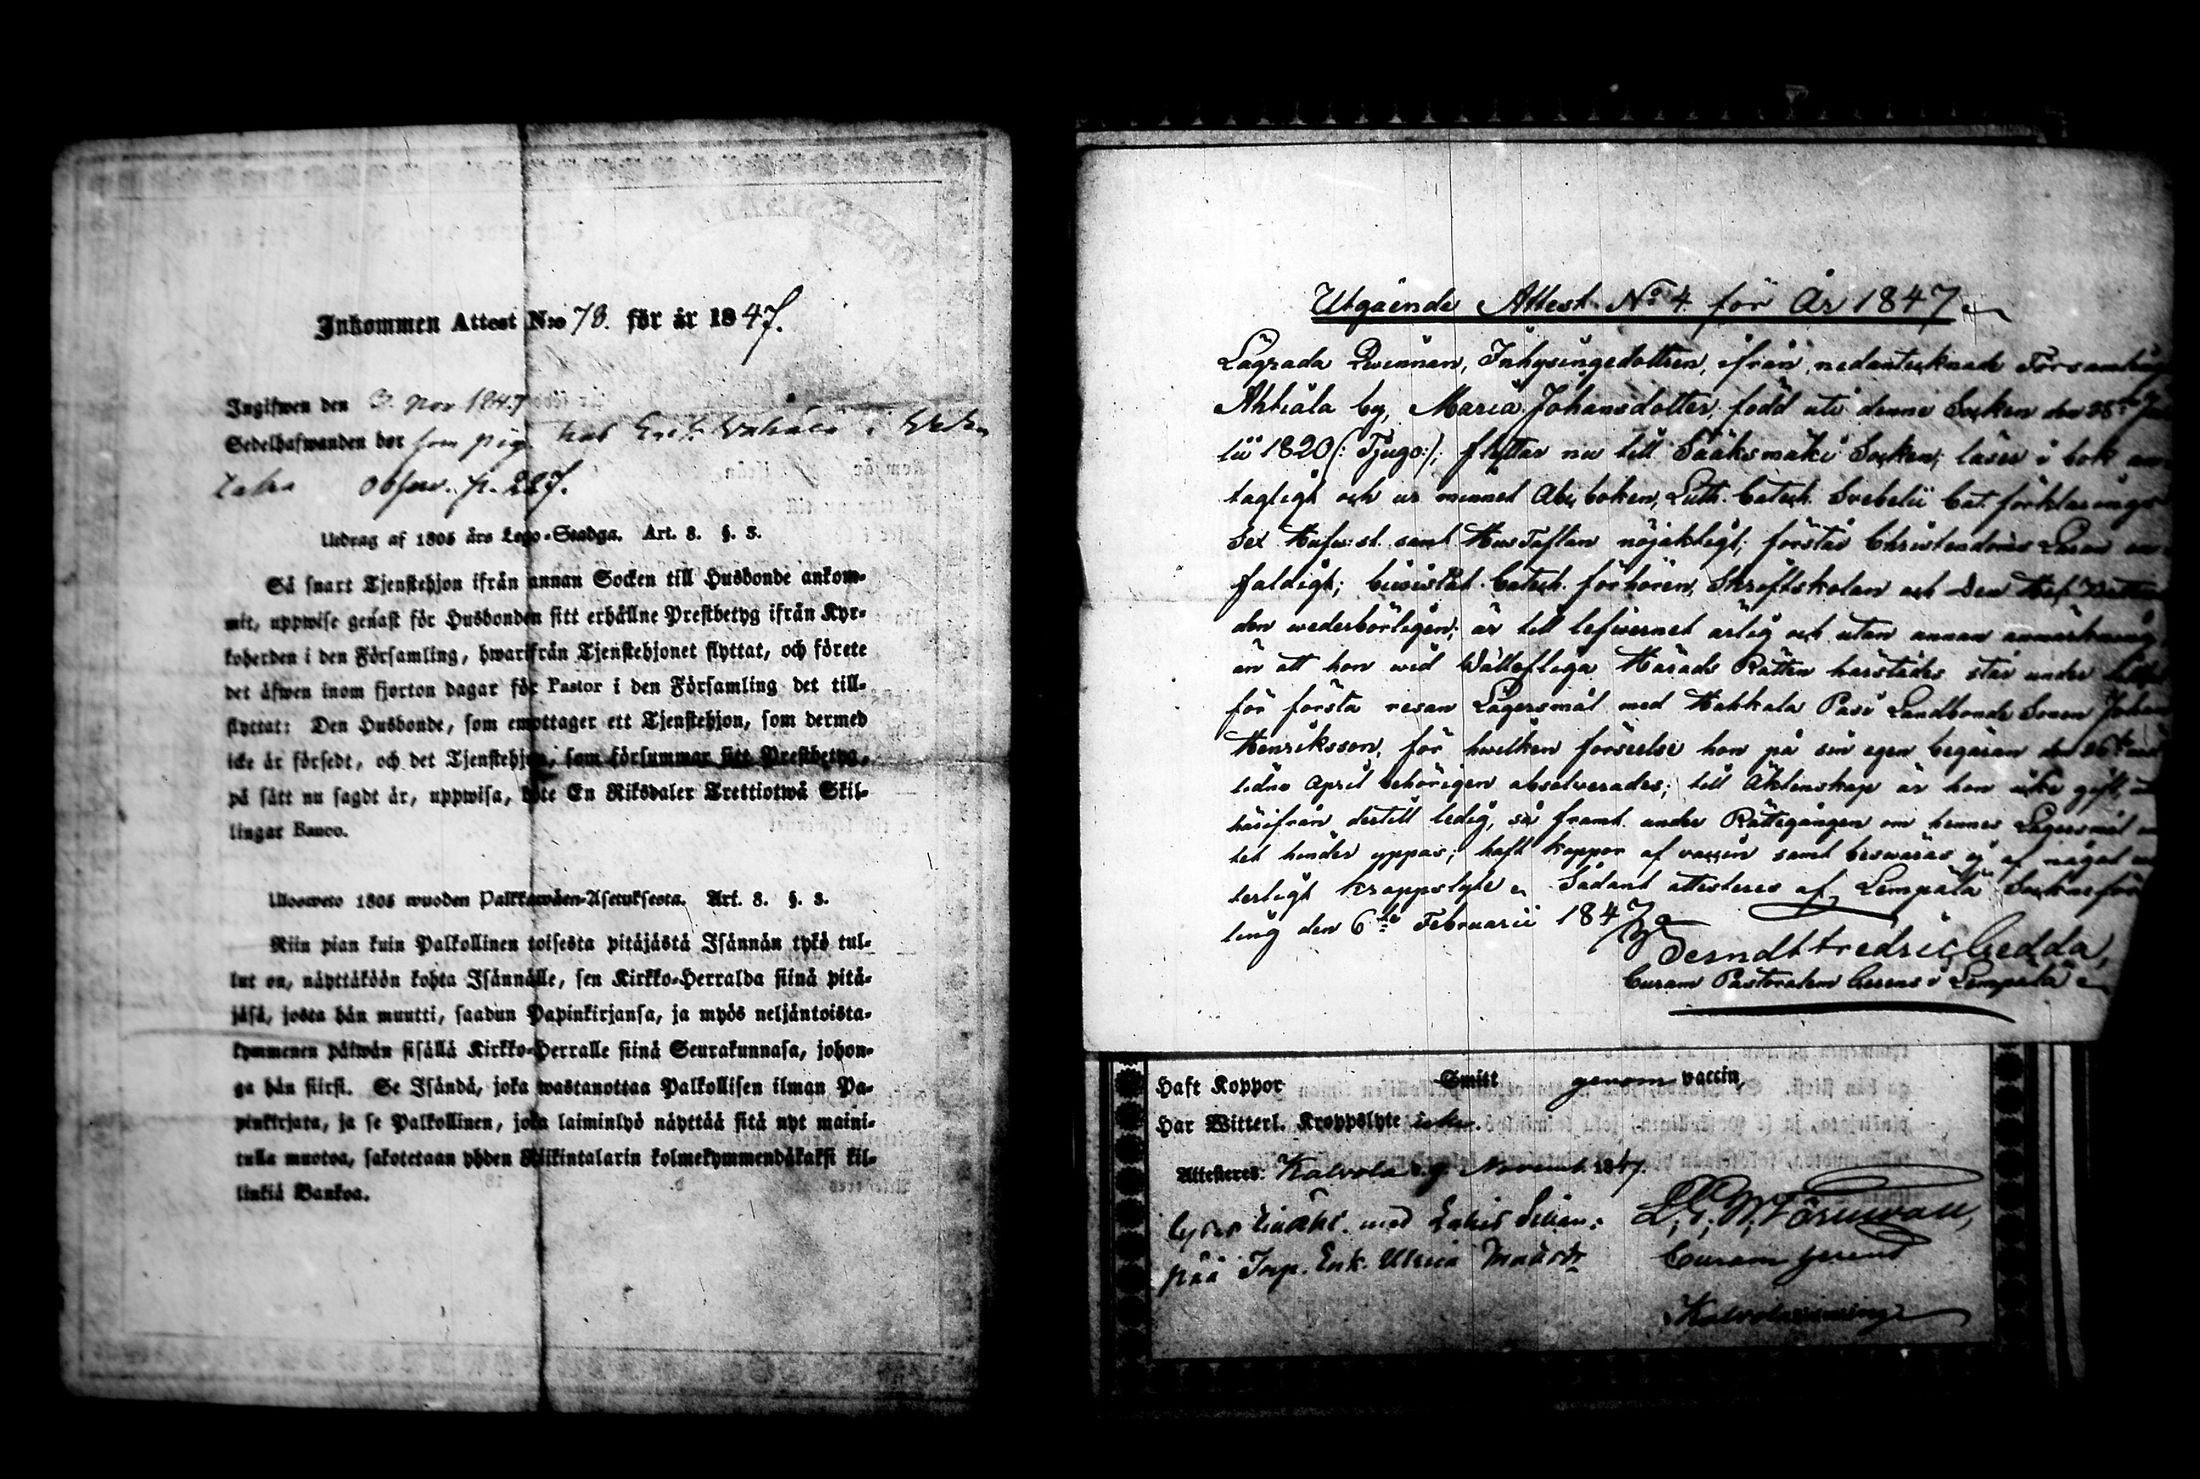 Inkommen Attest N:o 78. för år 1847.
Ingifwen den 3. Nov 1847
Sedelhafwanden bor som pig. hos Erik
Observ. p. 227.
Utdrag af 1805 års Lego-Stadga. Art. 8. §. 3.
Så snart Tjenstehjon ifrån annan Socken till Husbonde ankom-
mit, uppwise genast för Husbonden sitt erhållne Prestbetyg ifrån Kyr-
koherden i den Församling, hwarifrån Tjenstehjonet flyttat, och förete
det äfwen inom fjorton dagar för Pastor i den Församling det till-
flyttat: Den Husbonde, som emottager ett Tjenstehjon, som dermed
icke är försedt, och det Tjenstehjon, som försummar sitt Prestbetyg,
på sätt nu sagdt är, uppwisa, böte En Riksdaler Trettiotwå Skil-
lingar Banco.
Ulosweto 1805 wuoden Palkkawäen-Asetuksesta. Art. 8. §. 3.
Niin pian kuin Palkollinen toisesta pitäjästä Isännän tykö tul-
lut on, näyttäköön kohta Isännälle, sen Kirkko-Herralda siinä pitä-
jäsä, josta hän muutti, saadun Papinkirjansa, ja myös neljäntoista-
kymmenen päiwän sisällä Kirkko-Herralle siinä Seurakunnasa, johon-
ga hän siirsi. Se Isändä, joka wastanottaa Palkollisen ilman Pa-
pinkirjata, ja se Palkollinen, joka laiminlyö näyttää sitä nyt maini-
tulla muotoa, sakotetaan yhden Riikintalarin kolmekymmendäkaksi kil-
linkiä Bankoa.
Utgående Attest N:o 4 för År 1847
Lägrada Qwinnan, Inhysingedottren, ifrån nedantecknade Församling
Ahtiala by, Maria Johansdotter, född uti denne Socken den 25:te Ju-
lii 1820 (: Tjugo:), flyttar nu till Sääksmäki Socken; läser i bok an-
tagligt och ur minnet Abc boken, Luth. Catech. Svebelii Cat. förklarings
Sex Hufw: st. samt HusTaflan nöjaktigt; förstår Christendoms Läran en-
faldigt; biwistat Catech. förhören, Skriftskolan och Den Hel. Nattwar-
den wederbörligen; är till lefwernet ärlig och utan annan anmärkning
än att hon wid Wällofliga Härads Rätten härstädes står under tilltal
för första resan Lägersmål med Hakkala Pasi Landbonde Sonen Johan
Henriksson, för hwilken förseelse hon på sin egen begäran den 26:te
April behörigen absolverades; till Äktenskap är hon icke gift, ut
härifrån dertill ledig, så framt under Rättegången om hennes Lägersmål in-
tet hinder yppas; haft koppor af vaccin samt beswäras ej af något wit-
terligt kroppslyte. Sådant attesteras af Lempälä Sockneförsam-
ling den 6:te Februarii 1847
Berndt Fredric Gedda,
Curam Pastoralem Gerens i Lempälä
Haft Koppor Smitt genom vaccin,
Har Witterl. Kroppslyte icke.
Attesteras: Kalvola d. 9 Novemb. 1847.
med
Enk. Ulrica
Curam gerens